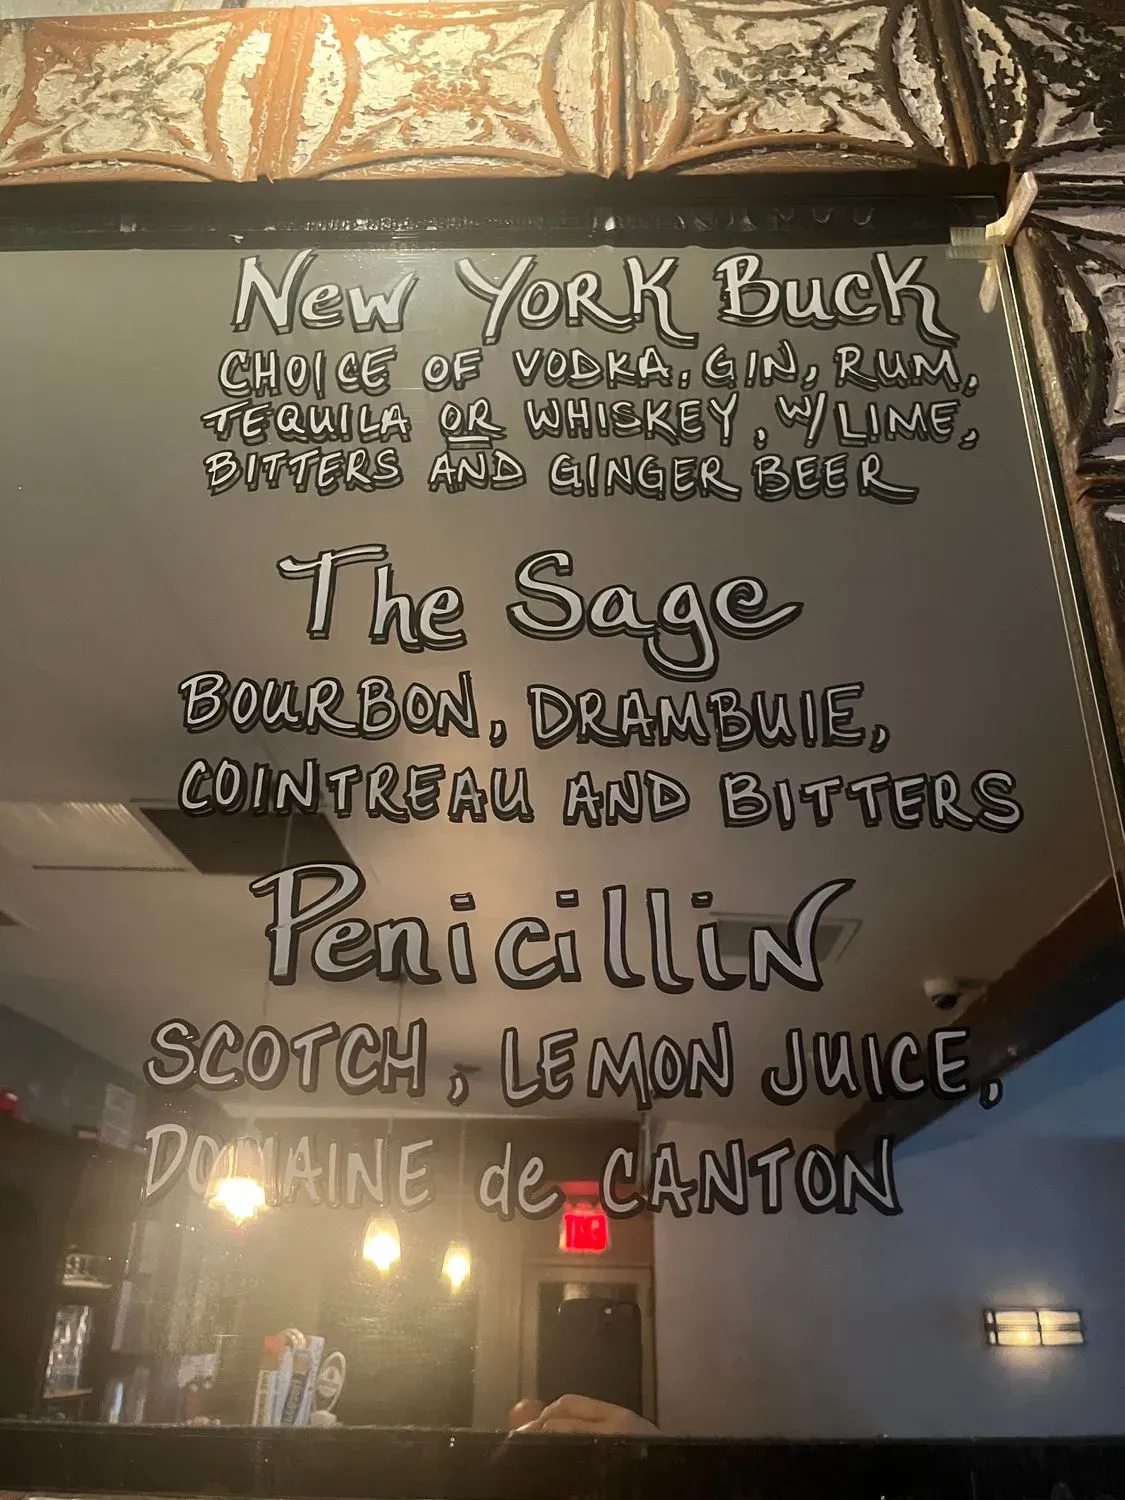 New York Buck
CHOICE OF VODKA, GIN, RUM,
TEQUILA OR WHISKEY, W/LIME,
BITTERS AND GINGER BEER
The Sage
BOURBON, DRAMBUIE,
COINTREAU AND BITTERS
Penicillin
SCOTCH, LEMON JUICE,
DOMAINE de CANTON